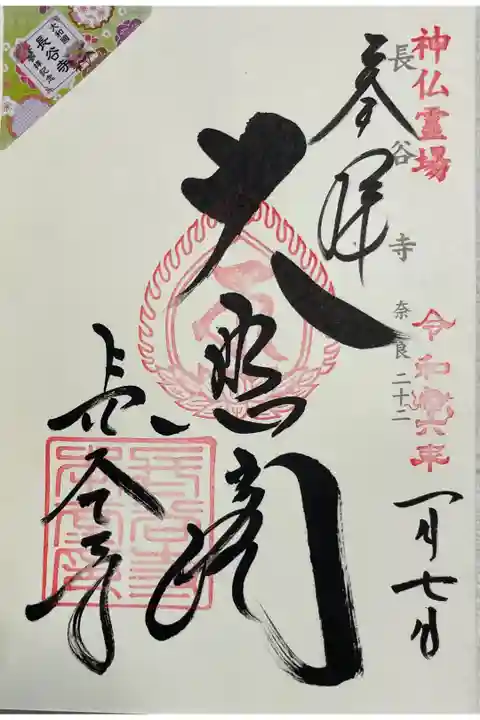 神仏霊場
令和六年
一月七日
長谷寺 奈良二十二
奉拝
大悲閣
長谷寺
長谷寺